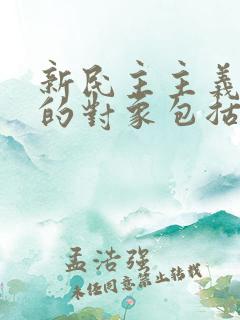 新民主主義
的對象包括
孟浩强
未经同意禁止转载